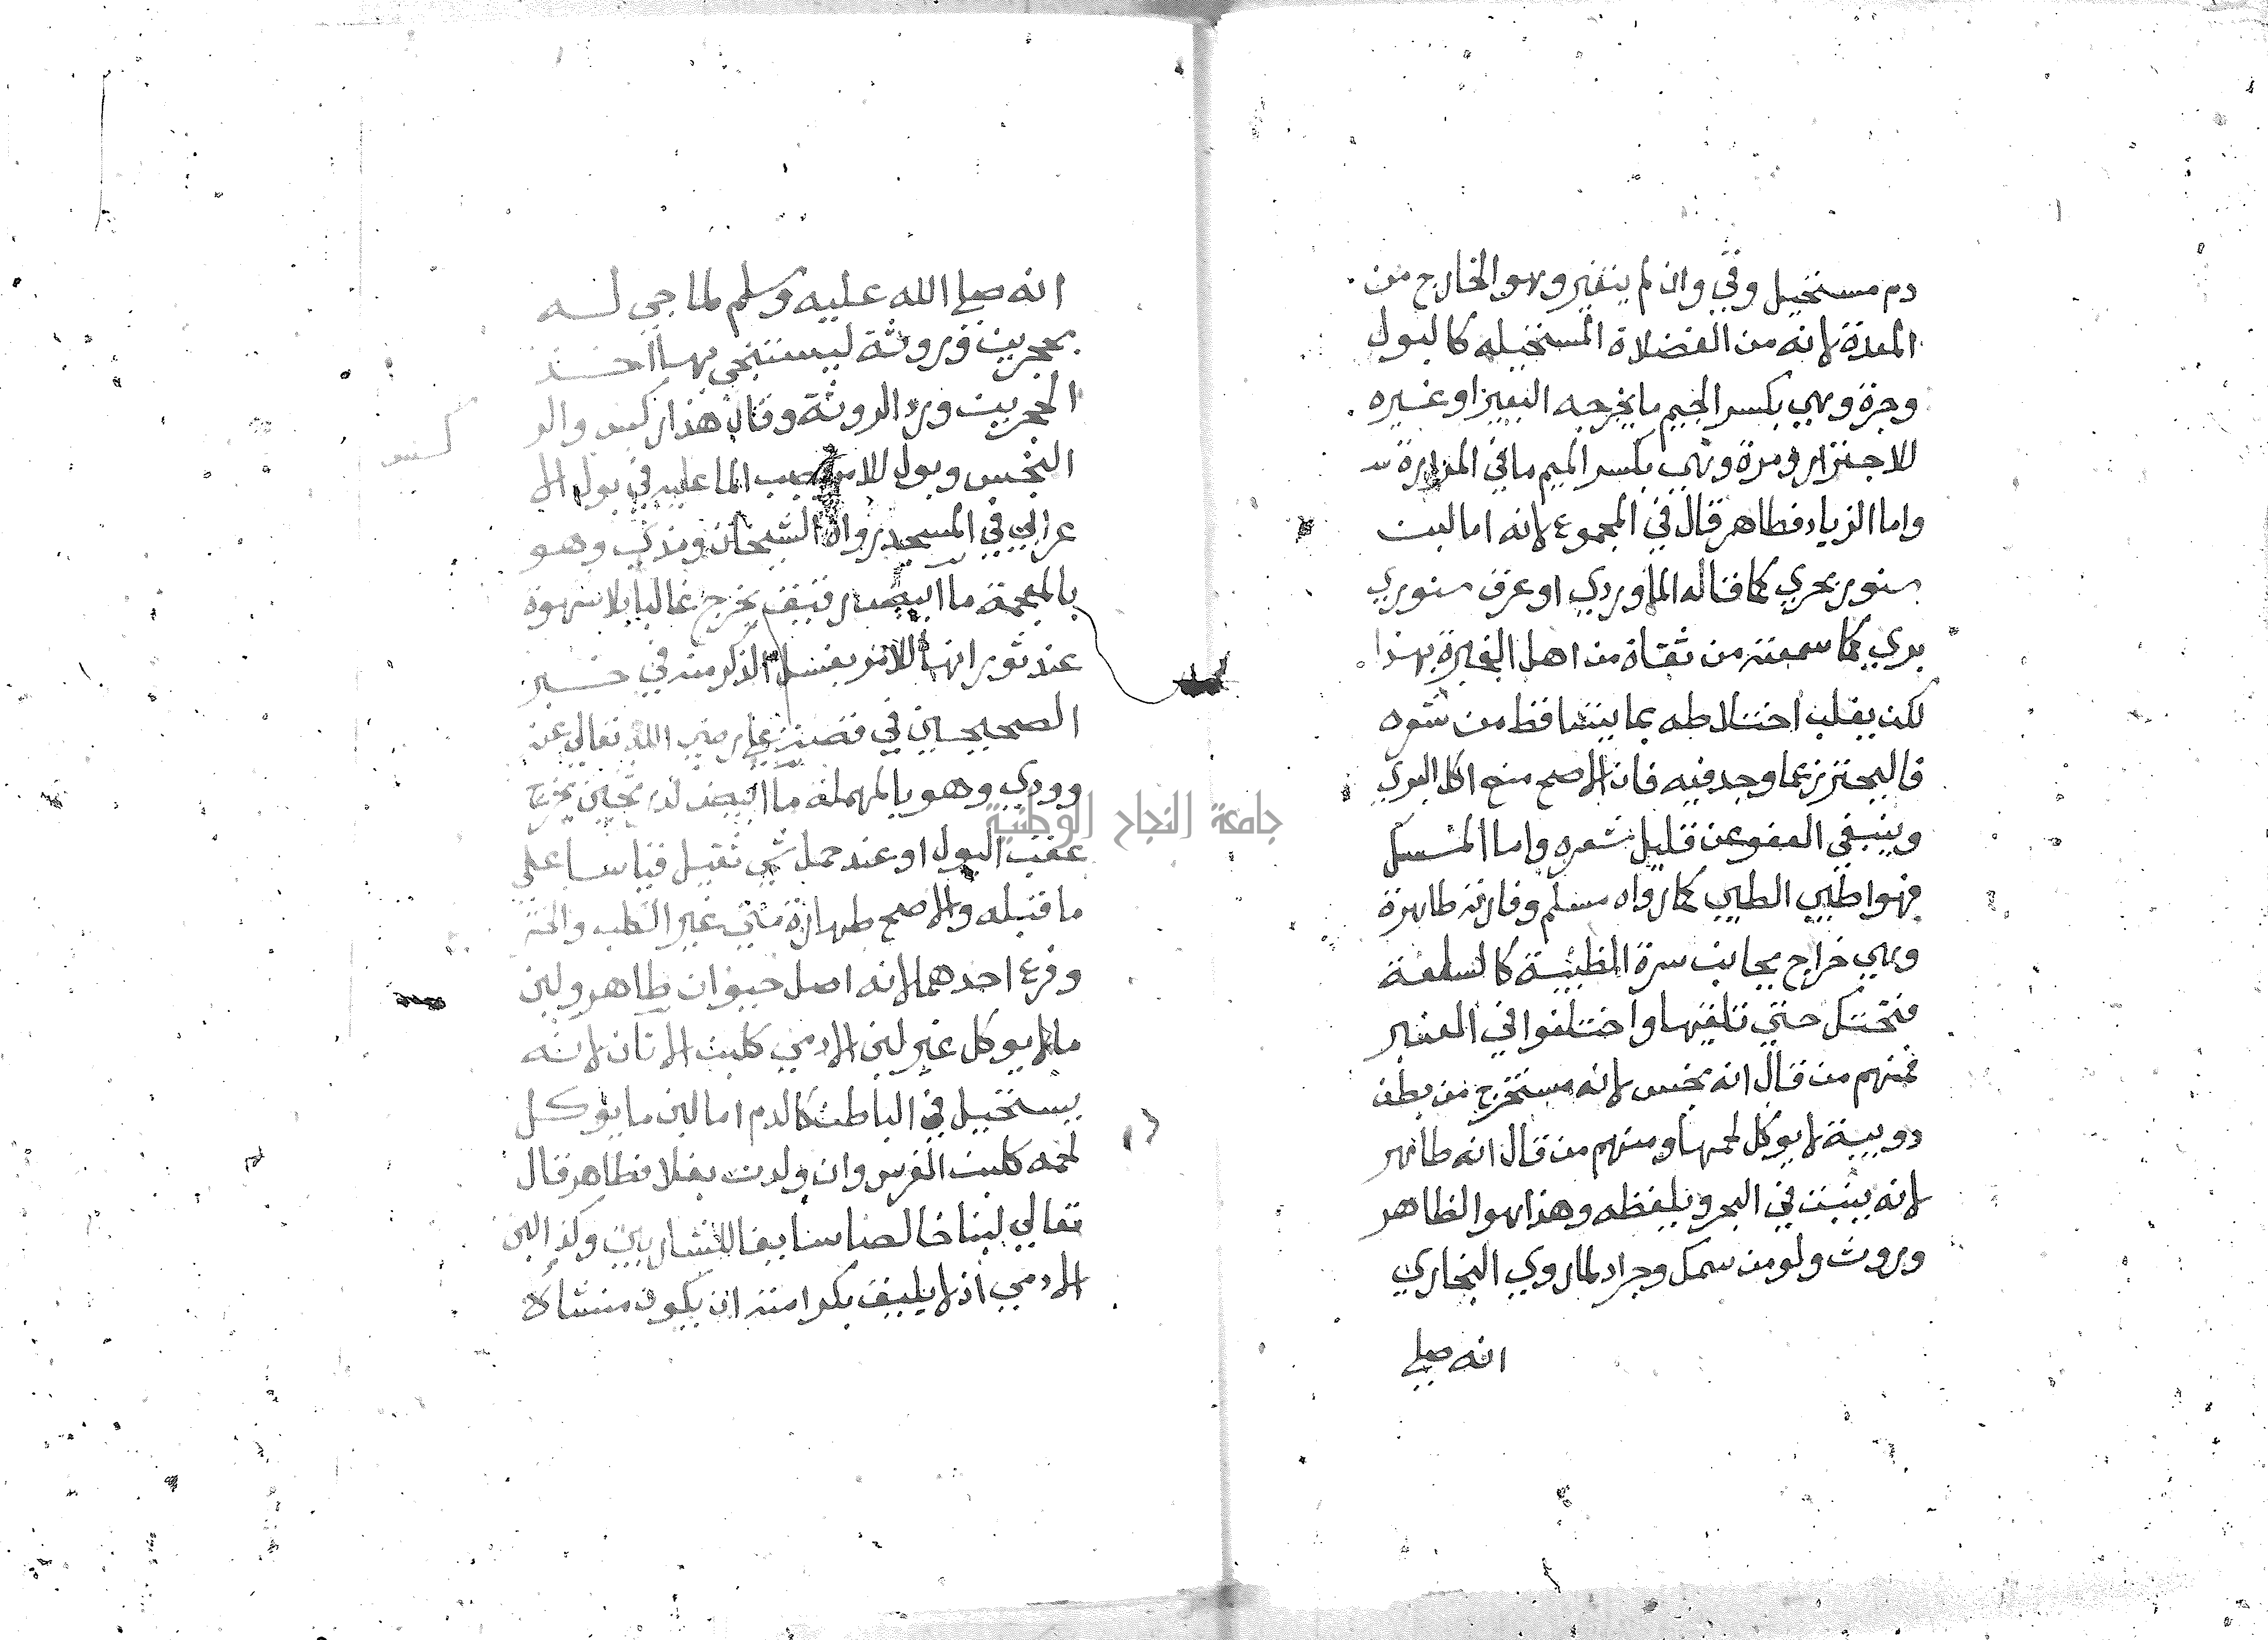 دم مستحيل وقي وان لم يتغير وهو الخارج من
المعدة لانه من الفضلاة المستحيله كالبول
وجرة وهي بكسر الجيم ما يخرجه البعير او غيره
للاجترار ومرة وهي بكسر الميم ما في المرارة
واما الزباد فطاهر قال في المجموع لانه اما لبن
سنور بحري كما قاله الماوردي او عرق سنوري
بري كما سمعته من ثقاة من اهل الخبرة بهذا
لكن يغلب اختلاطه بما يتساقط من شعره
فاليحترز عما وجد فيه فان الاصح منع اكل البري
وينبغي العفو عن قليل شعره واما المسك
فهو اطيب الطيب كما رواه مسلم وفارته طاهرة
وهي خراج بجانب سرة الظبية كالسلعة
فتحتك حتي تلقيها واختلفوا في العنبر
فمنهم من قال انه نجس لانه مستخرج من بطن
دويبة لا يوكل لحمها ومنهم من قال انه طاهر
لانه ينبت في البحر ويلفظه وهذا هو الظاهر
وروث ولو من سمك وجراد لما روي البخاري
انه صلي
انه صلي الله عليه وسلم لما جي له
بحجرين وروثة ليستنجي بها اخذ
الحجرين ورد الروثة وقال هذا ركس والر
كس
النجس وبول للامر بصب الما عليه في بول الا
عرابي في المسجد رواه الشيخان ومذي وهو
بالمعجمة ما ابيض رقيق يخرج غالبا بلا شهوة
عند ثورانها للامر بغسل الذكر منه في خبر
الصحيحين في قصة علي رضي الله تعالي عنه
وودي وهو بالمهملة ما ابيض كدر ثخين يخرج
عقب البول او عند حمل شي ثقيل قياسا علي
ما قبله والاصح طهارة مني غير الكلب والخنـ
وفرع احدهما لانه اصل حيوان طاهر ولبن
ما لا يوكل غير لبن الادمي كلبن الاتان لانه
يستحيل في الباطن كالدم اما لبن ما يوكل
لحمه كلبن الفرس وان ولدت بغلا فطاهر قال
تعالي لبنا خالصا سايغا للشاربين وكذا لبن
الادمي اذ لا يليق بكرامته ان يكون منشاه
جامعة النجاح الوطنية